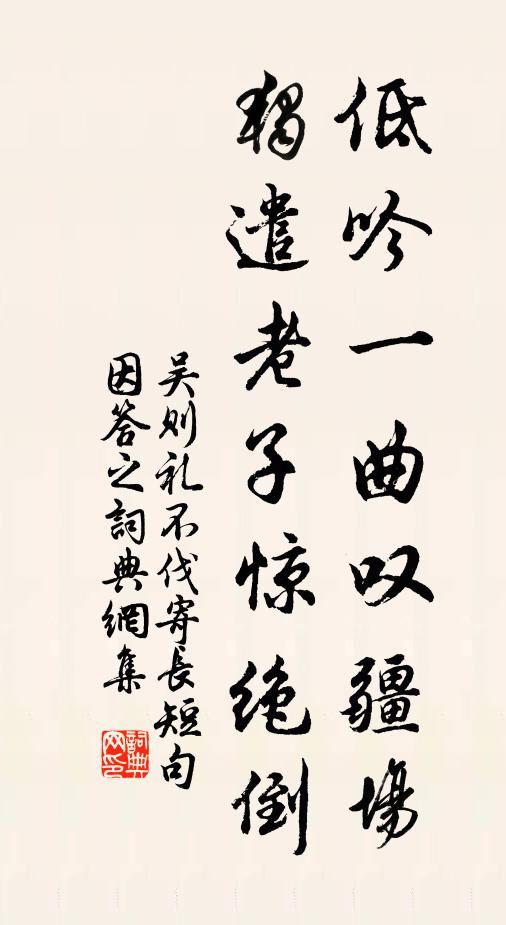 低吟一曲叹疆場
独遣老子惊绝倒
吴则礼不伐寄長短句
因答之詞典網集
詞典
网印